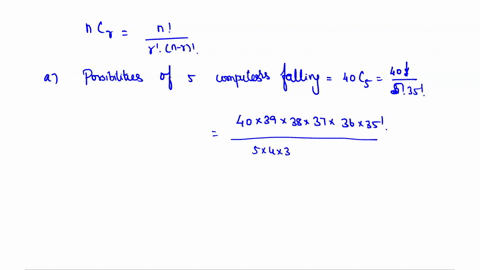 nCr = n! / r!.(n-r)!
a) Possibilities of 5 computers falling = 40C5 = 40! / 5! 35!
= 40 × 39 × 38 × 37 × 36 × 35! / 5 × 4 × 3